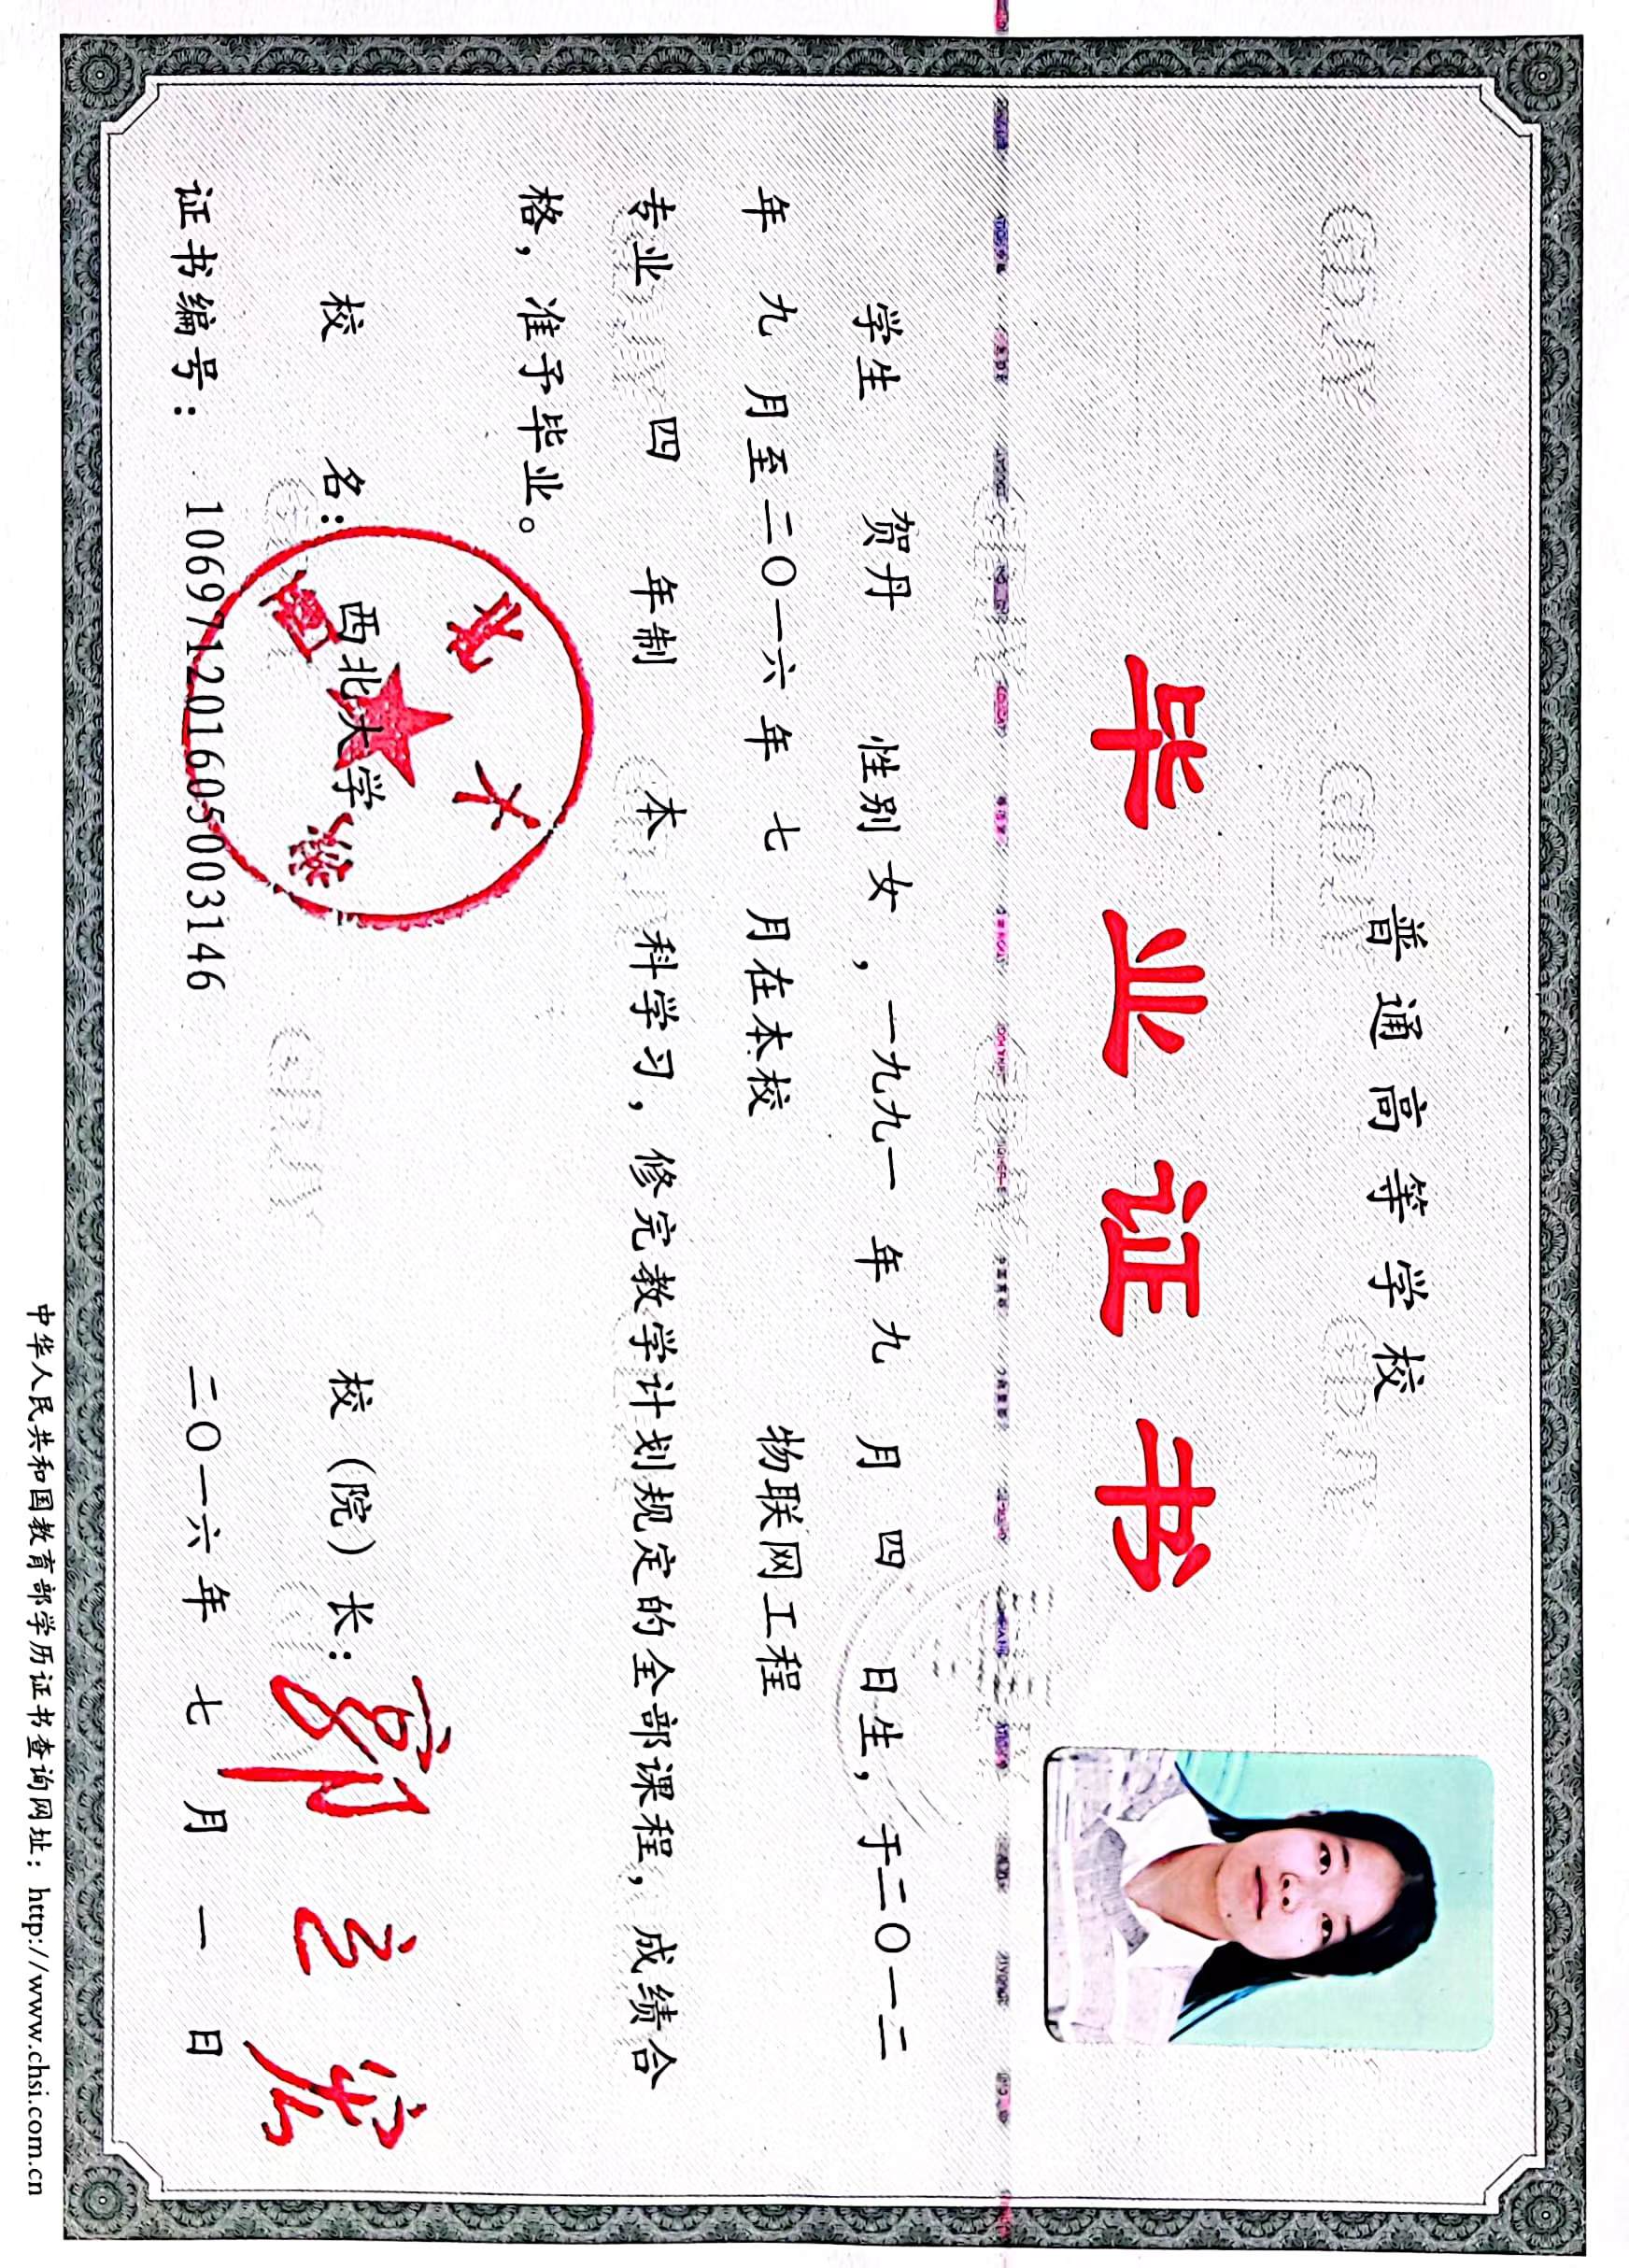 普通高等学校
毕业证书
学生 贺丹 性别 女，一九九一 年 九 月 四 日生，于二〇一二
年 九 月至二〇一六 年 七 月在本校 物联网工程
专业 四 年制 本 科学习，修完教学计划规定的全部课程，成绩合
格，准予毕业。
校 名：西北大学 校（院）长：
西北大学
证书编号：106971201605003146 二〇一六年 七 月 一 日
中华人民共和国教育部学历证书查询网址：http://www.chsi.com.cn